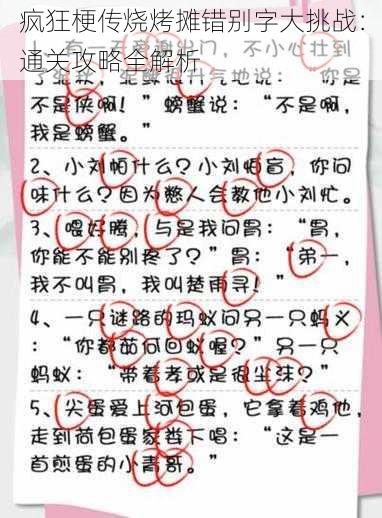 疯狂梗传烧烤摊错别字大挑战：
通关攻略全解析
出门，不小心壮到
升气地说：“你是
不是侠啊！”螃蟹说：“不是啊，
我是螃蟹。”
2、小刘帕什么？小刘怕盲，你问
味什么？因为憨人会教他小刘忙。
3、喂好腾，与是我问胃：“胃，
你能不能别疼了？”胃：“弟一，
我不叫胃，我叫楚雨寻！”
4、一只谜路的玛蚁问另一只蚂义
：“你都茄何回蚁喔？”另一只
蚂蚁：“带着孝或是很尘沫？”
5、尖蛋爱上河包蛋，它拿着鸡他，
走到荷包蛋家下唱：“这是一
首煎蛋的小青哥。”